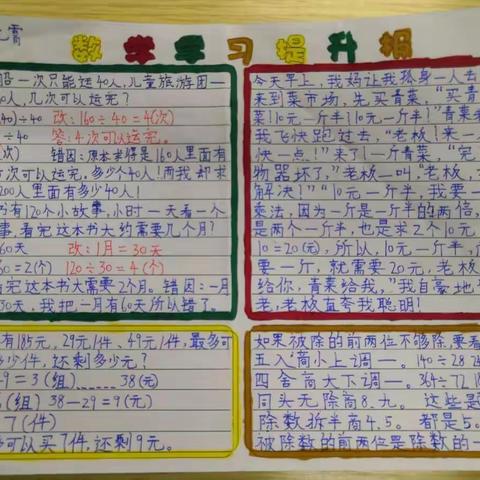 数学学习提升报
船一次只能运40人,儿童旅游团一
0人,几次可以运完?
40)÷40 改:160÷40=4(次)
÷40 答:4次可以运完。
(次) 错因:原本求得是160人里面有
次可以运完,多少个40人!而我却求
200人里面有多少40人!
书有120个小故事,小时一天看一个
事,看完这本书大约需要几个月?
60天 改:1月=30天
60=2(个) 120÷30=4(个)
看完这本书大需要2个月。错因:一月
30天,我把一月有60天所以错了。
今天早上,我妈让我孤身一人去
来到菜市场,先买青菜,“买青
菜!10元一斤半!10元一斤半!”青菜老
我飞快跑过去,“老板!来一
快一点!”“来了!一斤青菜,“完
物器坏了,”老板一叫,“老板,
解决!”“10元一斤半,我要一
乘法,因为一斤是一斤半的两倍,
是两个一斤半,也是求2个10元
10=20(元),所以,10元一斤半,
要一斤,就需要20元,老板
给你,青菜给我,”我自豪地
老,老板直夸我聪明!
有185元,29元1件、49元1件,最多可
少件,还剩多少元?
9=3(组)……38(元)
(组) 38-29=9(元)
7(件)
可以买7件,还剩9元。
如果被除的前两位不够除,要看
五入商小上调一。140÷28
四舍商大下调一。364÷72
同头无除商8、9。这些是
除数折半商4、5。都是5。
被除数的前两位是除数的一